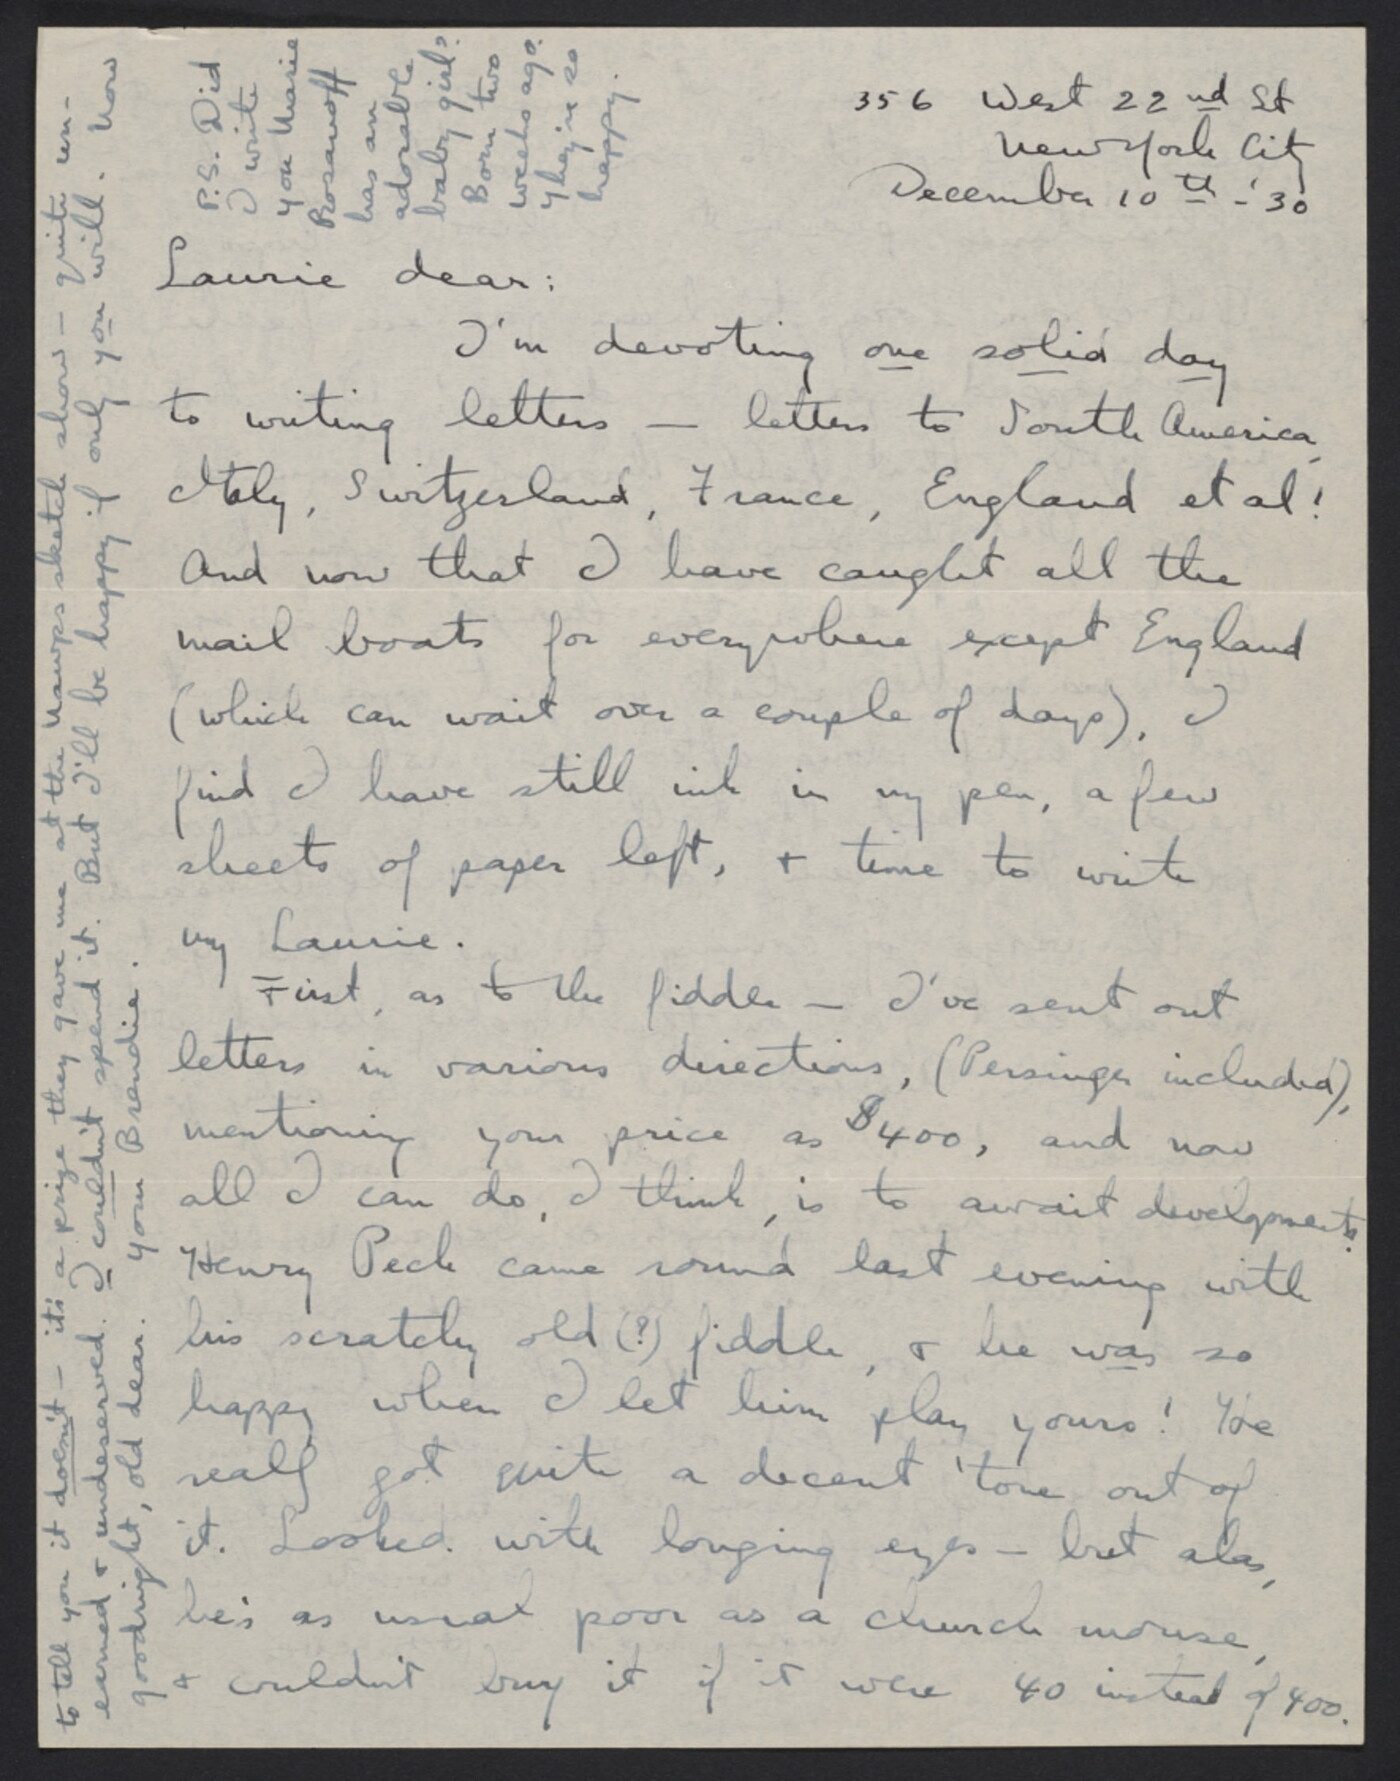 356 West 22nd St
New York City
December 10th - '30
Laurie dear:
I'm devoting one solid day
to writing letters — letters to South America,
Italy, Switzerland, France, England et al!
And now that I have caught all the
mail boats for everywhere except England
(which can wait over a couple of days), I
find I have still ink in my pen, a few
sheets of paper left, + time to write
my Laurie.
First, as to the fiddle — I've sent out
letters in various directions, (Persinger included),
mentioning your price as $400, and now
all I can do, I think, is to await developments.
Henry Peck came round last evening with
his scratchy old (?) fiddle, + he was so
happy when I let him play yours! He
really got quite a decent tone out of
it. Looked with longing eyes — but alas,
he's as usual poor as a church mouse,
+ couldn't buy it if it were 40 instead of 400.
to tell you it doesn't — it's a prize they gave me at the Nawps sketch show — quite un-
earned + undeserved. I couldn't spend it. But I'll be happy if only you will. Now
goodnight, old dear. Your Brendie.
P.S. Did
I write
you Marie
Rosanoff
has an
adorable
baby girl?
Born two
weeks ago.
They're so
happy.